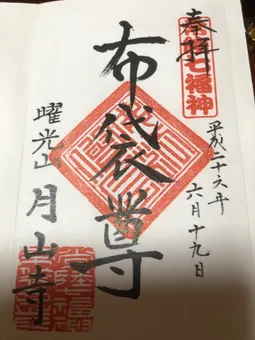 奉拝
七福神
平成二十六年
六月十九日
布袋尊
曜光山 月山寺